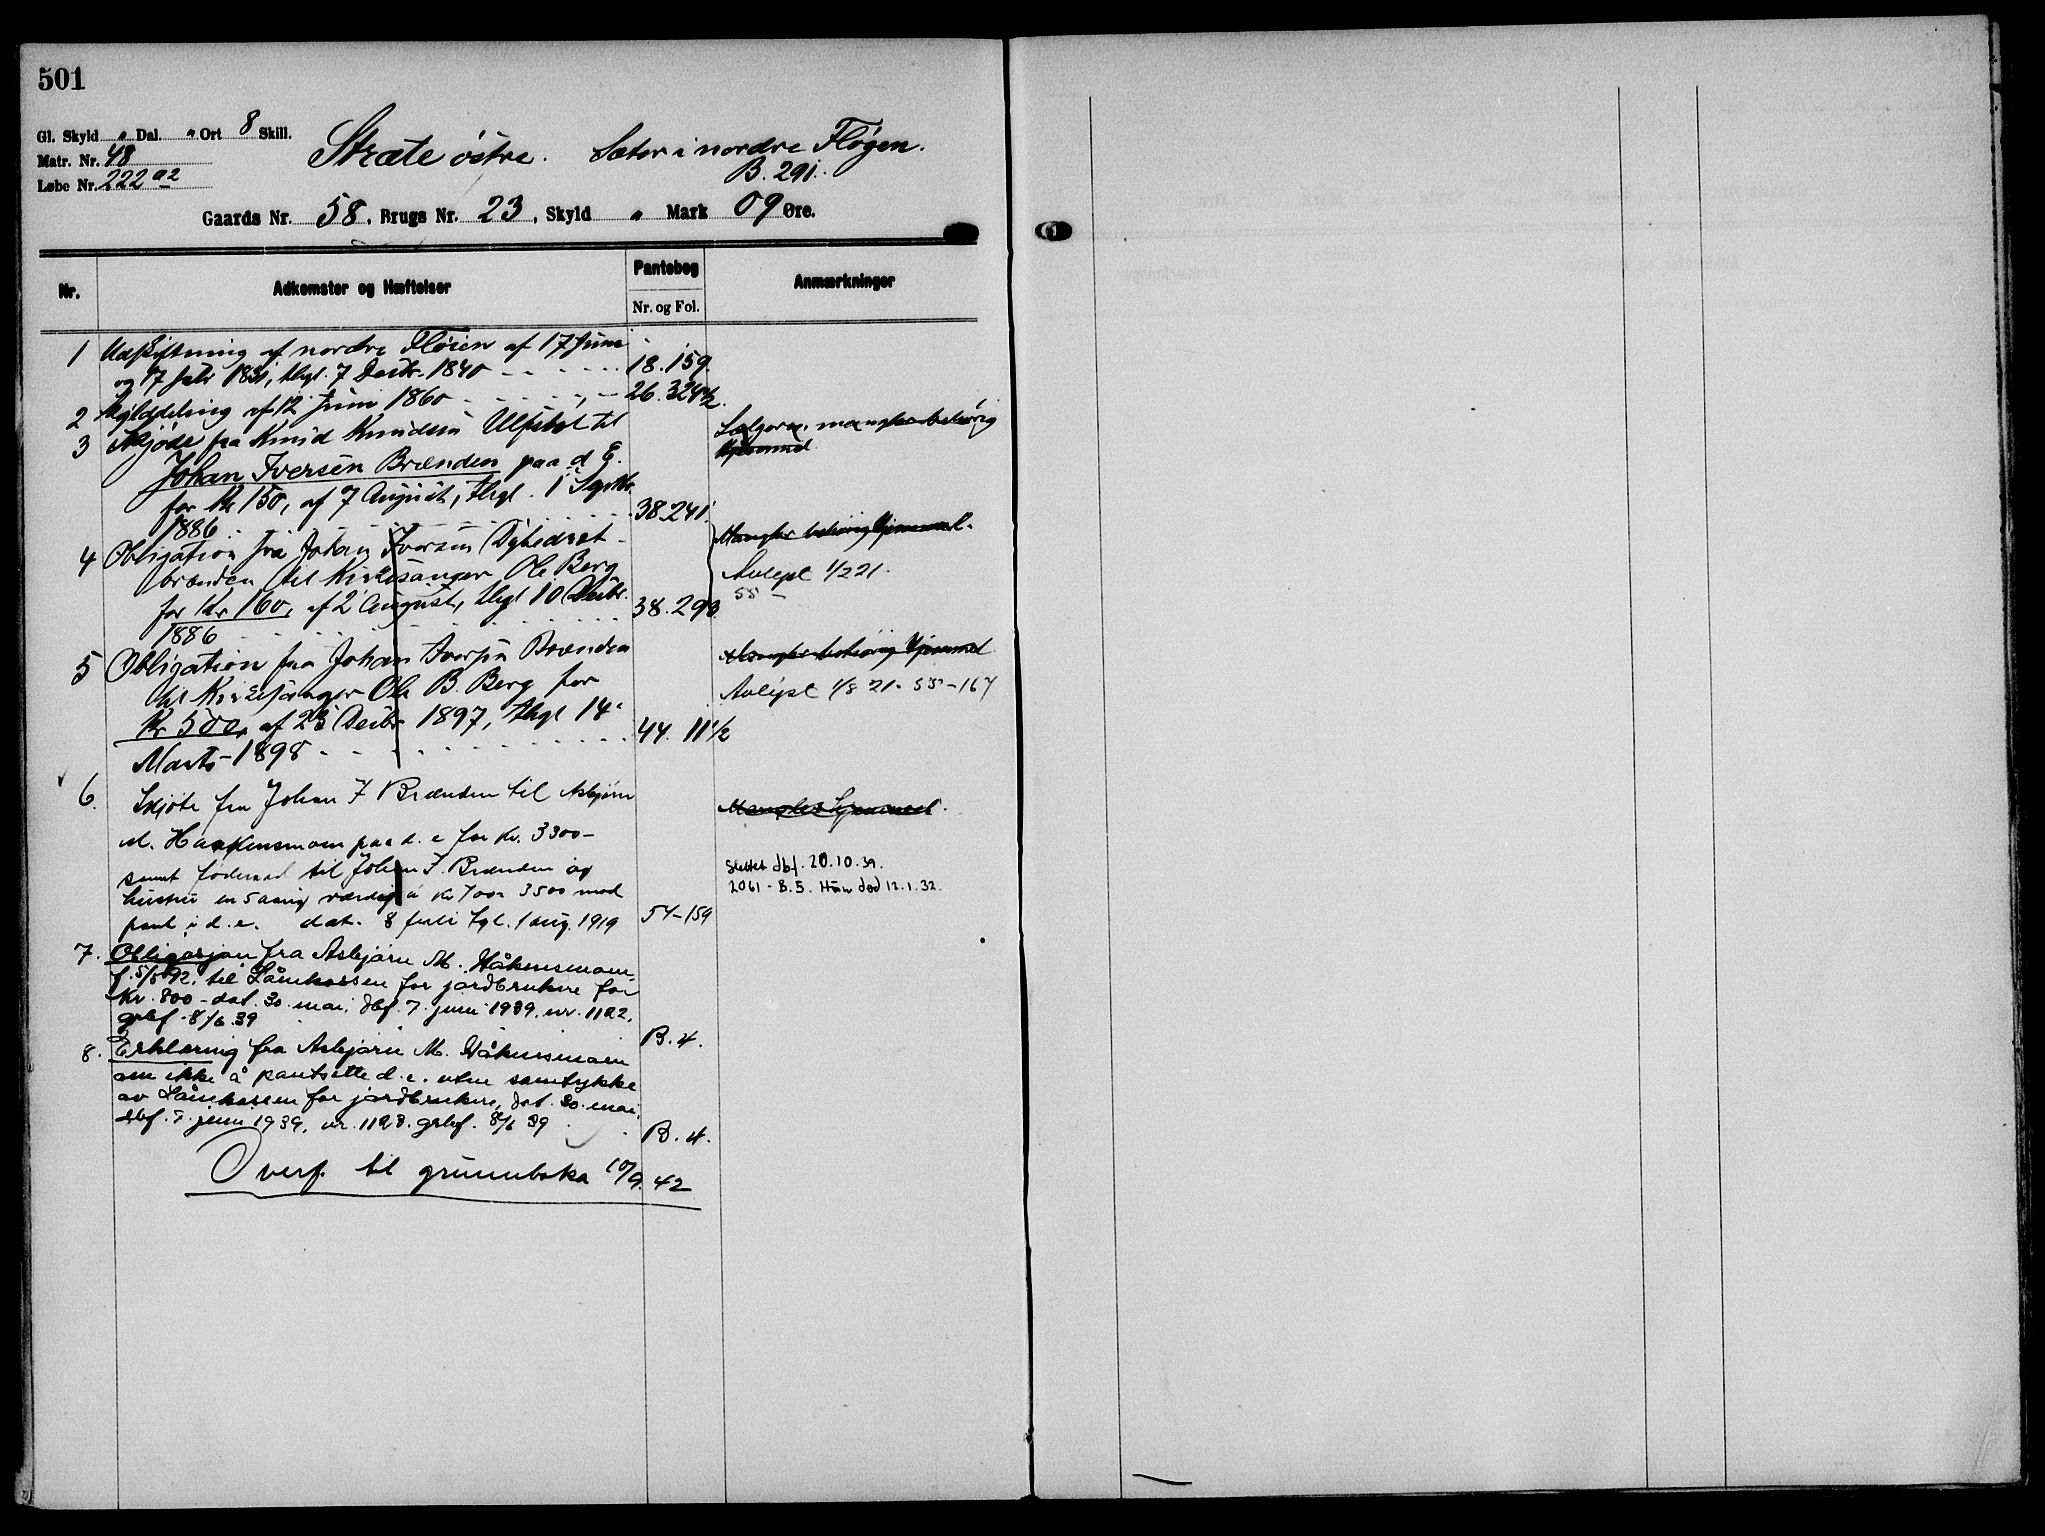 501
Gl. Skyld " Dal. " Ort 8 Skill.
Matr. Nr. 48
Løbe Nr. 222 a2
Stræte østre. Sæter i nordre Fløgen.
B. 291.
Gaards Nr. 58, Brugs Nr. 23, Skyld " Mark 09 Øre.
Nr.
Adkomster og Hæftelser
Pantebog
Nr. og Fol.
Anmærkninger
1 Udskiftning af nordre Fløien af 17 Juni
og 17 Juli 1831, thgl. 7 Decbr. 1840 18. 159.
2 Skylddeling af 12 Juni 1860 26. 324½.
3 Skjøde fra Knud Knudsen Ulfsbol til
Johan Iversen Brænden paa d. E.
for Kr 150, af 7 August, thgl. 1 Septbr.
1886 38.241.
Sælgeren mangler behørig
Hjemmel.
4 Obligation fra Johan Iversen
brænden til Kirkesanger Ole Berg
for Kr 160, af 2 August, thgl 10 Decbr.
1886 38. 293.
Mangler behørig Hjemmel.
Avlyst 1/2 21.
55 –
5 Obligation fra Johan Iversen Brænden
til Kirkesanger Ole B. Berg for
Kr 500, af 23 Decbr 1897, thgl 14
Marts 1898 44. 11½
Mangler behørig Hjemmel
Avlyst 1/8 21. 55–167
6. Skjøte fra Johan I Brænden til Asbjørn
M. Haakensmoen paa d. e for Kr. 3300–
samt føderaad til Johan I. Brænden og
hustru en 5 aarig værdi á Kr 700 3500 mod
pant i d. e. dat. 8 juli tgl. 1 aug. 1919 54–159
Mangler Hjemmel.
Slettet dbf. 20.10.39.
2061 – B.5. Han død 12.1.32.
7. Obligasjon fra Asbjørn M. Håkensmoen,
f. 5/5 92, til Lånekassen for jordbrukere for
Kr. 800 – dat. 30. mai, dbf. 7. juni 1939, nr. 1122,
grbf. 8/6 39 B. 4.
8. Erklæring fra Asbjørn M. Håkensmoen
om ikke å pantsette d. e. uten samtykke
av Lånekassen for jordbrukere, dat. 30. mai,
dbf. 7. juni 1939, nr. 1123. grbf. 8/6 39 B. 4.
Overf. til grunnboka 10/9. 42